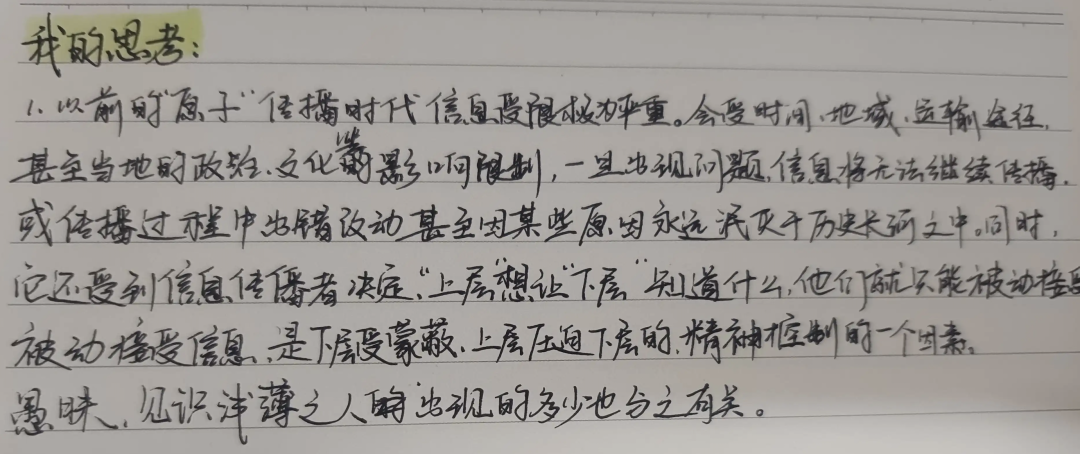 我的思考：
1.以前的“原子”传播时代信息受限极为严重。会受时间、地域、运输途径、
甚至当地的政治、文化等影响限制，一旦出现问题，信息将无法继续传播，
或传播过程中出错改动甚至因某些原因永远泯灭于历史长河之中。同时，
它还受到信息传播者决定，“上层”想让“下层”知道什么，他们就只能被动接受
被动接受信息，是下层受蒙蔽、上层压迫下层的，精神控制的一个因素。
愚昧、见识浅薄之人的出现的多少也与之有关。